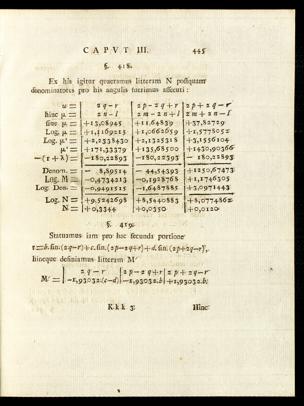 CAPVT III. 445
§. 418.
Ex his igitur quaeramus litteram N postquam
denominatores pro his angulis fuerimus assecuti:
ω = | 2q-r | 2p-2q+r | 2p+2q-r
hinc μ = | 2n-l | 2m-2n+l | 2m+2n-l
siue μ = | +13,08945 | +11,64839 | +37,82729
Log. μ = | +1,1169215 | +1,0662659 | +1,5778052
Log. μ² = | +2,2338430 | +2,1325318 | +3,1556104
μ² = | +171,33379 | +135,68500 | +1430,90366
-(1+λ) = | -180,22893 | -180,22893 | -180,22893
Denom. = | -8,89514 | -44,54393 | +1250,67473
Log. M = | -0,4734213 | -0,1928768 | +1,1746305
Log. Den. = | -0,9491515 | -1,6487885 | +3,0971443
Log. N = | +9,5242698 | +8,5440883 | +8,0774862
N = | +0,3344 | +0,0350 | +0,0120
§. 419.
Statuamus iam pro hac secunda portione
τ = b. sin. (2q-r) + c. sin. (2p-2q+r) + d. sin. (2p+2q-r),
hincque definiamus litteram M′
| 2q-r | 2p-2q+r | 2p+2q-r
M′ = | -1,93032.(c-d) | -1,93032.b | +1,93032.b;
Kkk 3 Hinc